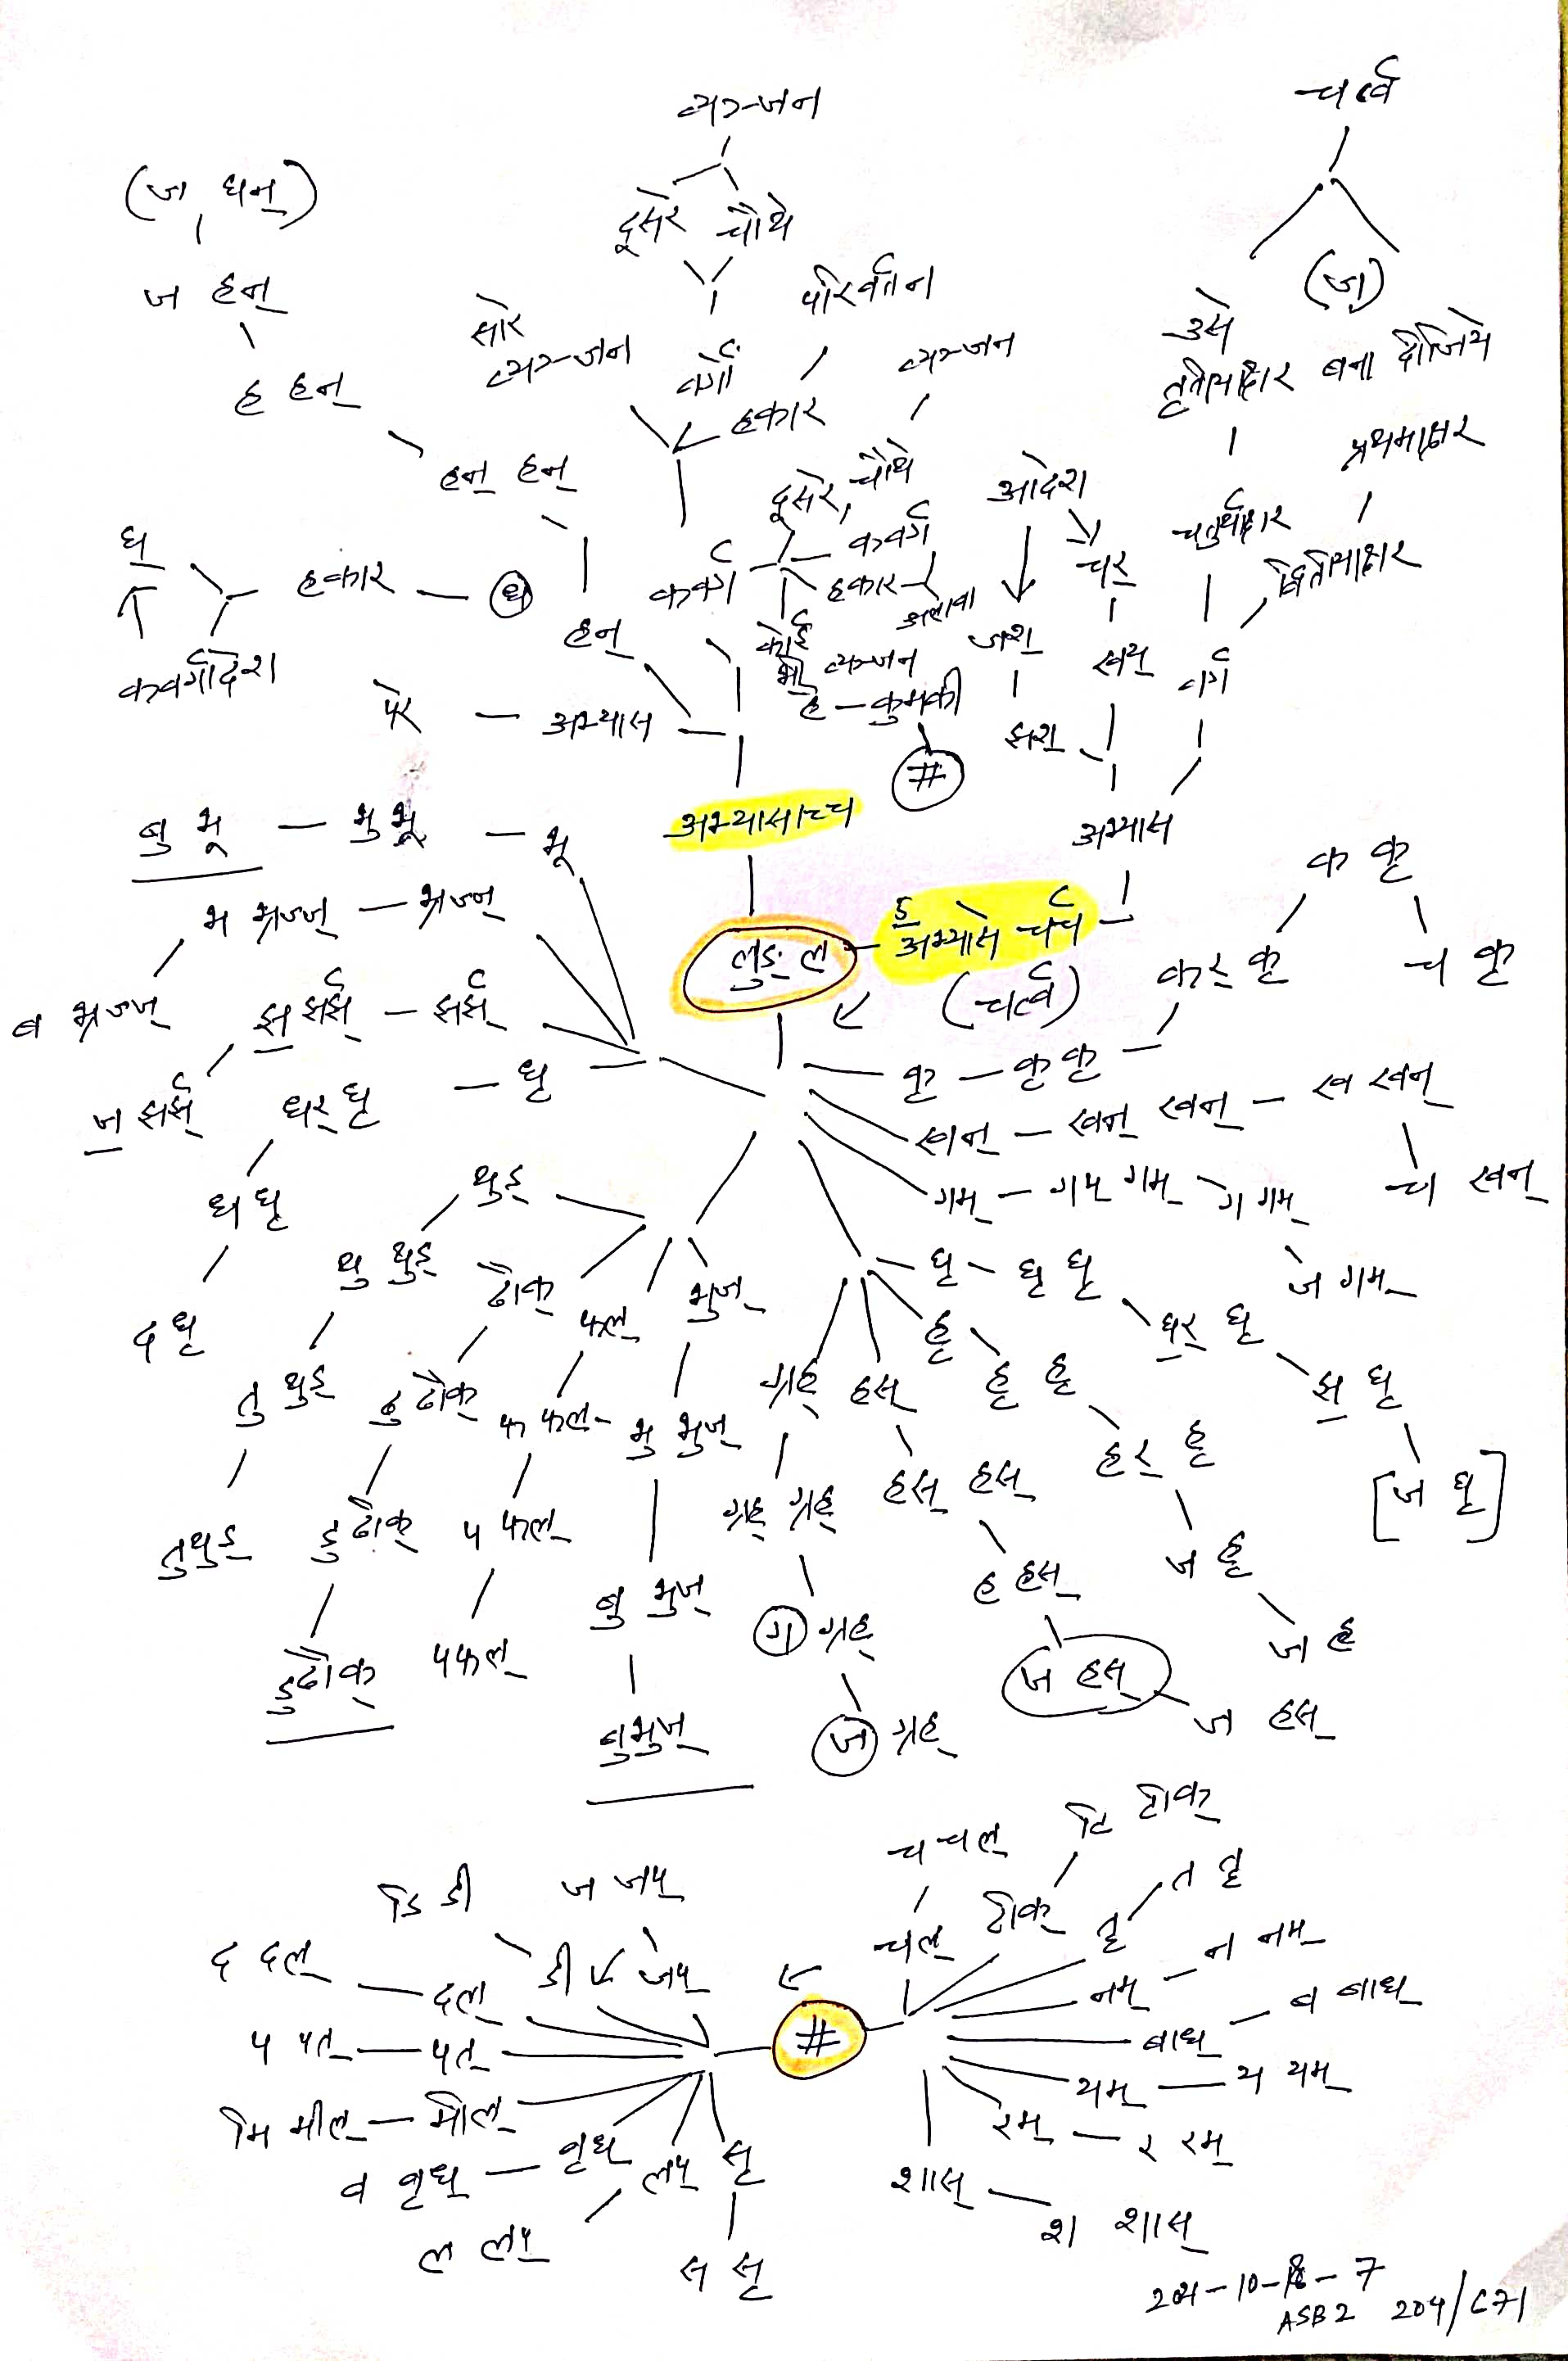 व्यञ्जन
चर्त्व
(ज घन्)
दूसरे चौथे
ज हन्
परिवर्तन
(ज)
सारे
व्यञ्जन
वर्गों
व्यञ्जन
उसे
तृतीयाक्षर बना दीजिये
ह हन्
हकार
हन् हन्
दूसरे, चौथे
आदेश
प्रथमाक्षर
घ
हकार — घ
कवर्ग
कवर्ग
हकार
अलावा
चर्
चतुर्थाक्षर
द्वितीयाक्षर
कवर्गादेश
हन्
कोई
भी व्यञ्जन
है — कुमकी
जश्
खय्
वर्ग
परे — अभ्यास
#
झश्
अभ्यासाच्च
अभ्यास
बु भू — भु भू — भू
क कृ
भ भ्रज्ज् — भ्रज्ज्
लुङ् ल
अभ्यासे चर्च
(चर्त्व)
कर् कृ
च कृ
ब भ्रज्ज्
झ झर्झ् — झर्झ्
ज झर्झ्
धर् धृ — धृ
कृ — कृ कृ
खन् — खन् खन् — ख खन्
च खन्
गम् — गम् गम् — ग गम्
ज गम्
ध धृ
थुड्
थु थुड्
ढौक्
फल्
भुज्
घृ — घृ घृ
घर् घृ
झ घृ
[ज घृ]
द धृ
तु थुड्
ढु ढौक्
फ फल्
भु भुज्
ग्रह्
हस्
हृ
हृ हृ
हर् हृ
तुथुड्
डु ढौक्
प फल्
ग्रह् ग्रह्
हस् हस्
ज हृ
डुढौक्
पफल्
बु भुज्
ग ग्रह्
ह हस्
ज हृ
बुभुज्
ज ग्रह्
ज हस्
ज हस्
डि डी
ज जप्
च चल्
टि टीक्
द दल् — दल्
डी
जप्
चल्
टीक्
तृ
त तृ
प पत् — पत्
#
नम् — न नम्
बाध् — ब बाध्
मि मील् — मील्
यम् — य यम्
व वृध् — वृध्
रम् — र रम्
ल लप्
लप्
सृ
स सृ
शास् — श शास्
ASB2 204/C71